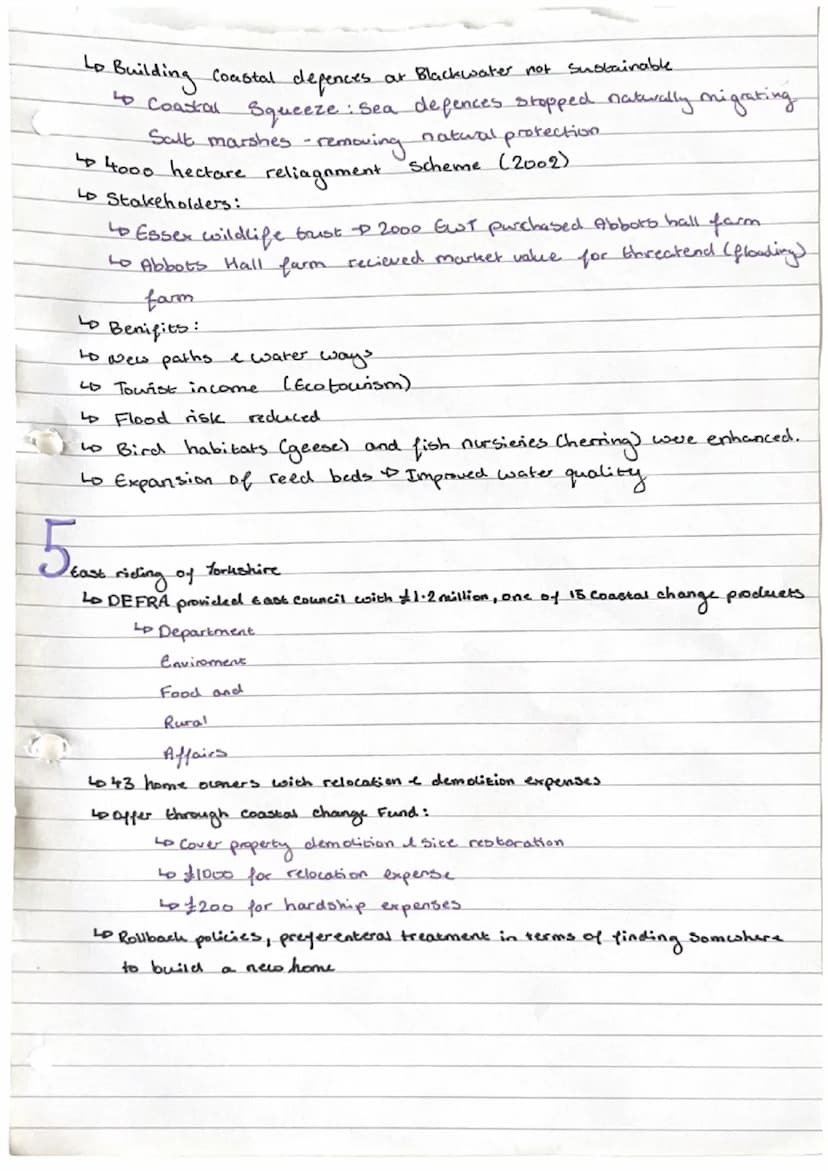 ↳ Building Coastal defences at Blackwater not sustainable
↳ Coastal Squeeze : Sea defences stopped naturally migrating
Salt marshes - removing natural protection
↳ 4000 hectare reliagnment scheme (2002)
↳ Stakeholders:
↳ Essex wildlife trust → 2000 EWT purchased Abbots hall farm
↳ Abbots Hall farm recieved market value for threatend (flooding)
farm
↳ Benifits:
↳ New paths & water ways
↳ Tourist income (Ecotourism)
↳ Flood risk reduced
↳ Bird habitats (geese) and fish nursieries (herring) were enhanced.
↳ Expansion of reed beds → Improved water quality
5
East riding of Yorkshire
↳ DEFRA provided east council with £1.2 million, one of 15 coastal change products
↳ Department
Enviroment
Food and
Rural
Affairs
↳ 43 home owners with relocation & demolition expenses
↳ offer through coastal change Fund:
↳ Cover property demolition & site restoration
↳ £1000 for relocation expense
↳ £200 for hardship expenses
↳ Rollback policies, preferenteral treatment in terms of finding somewhere
to build a new home